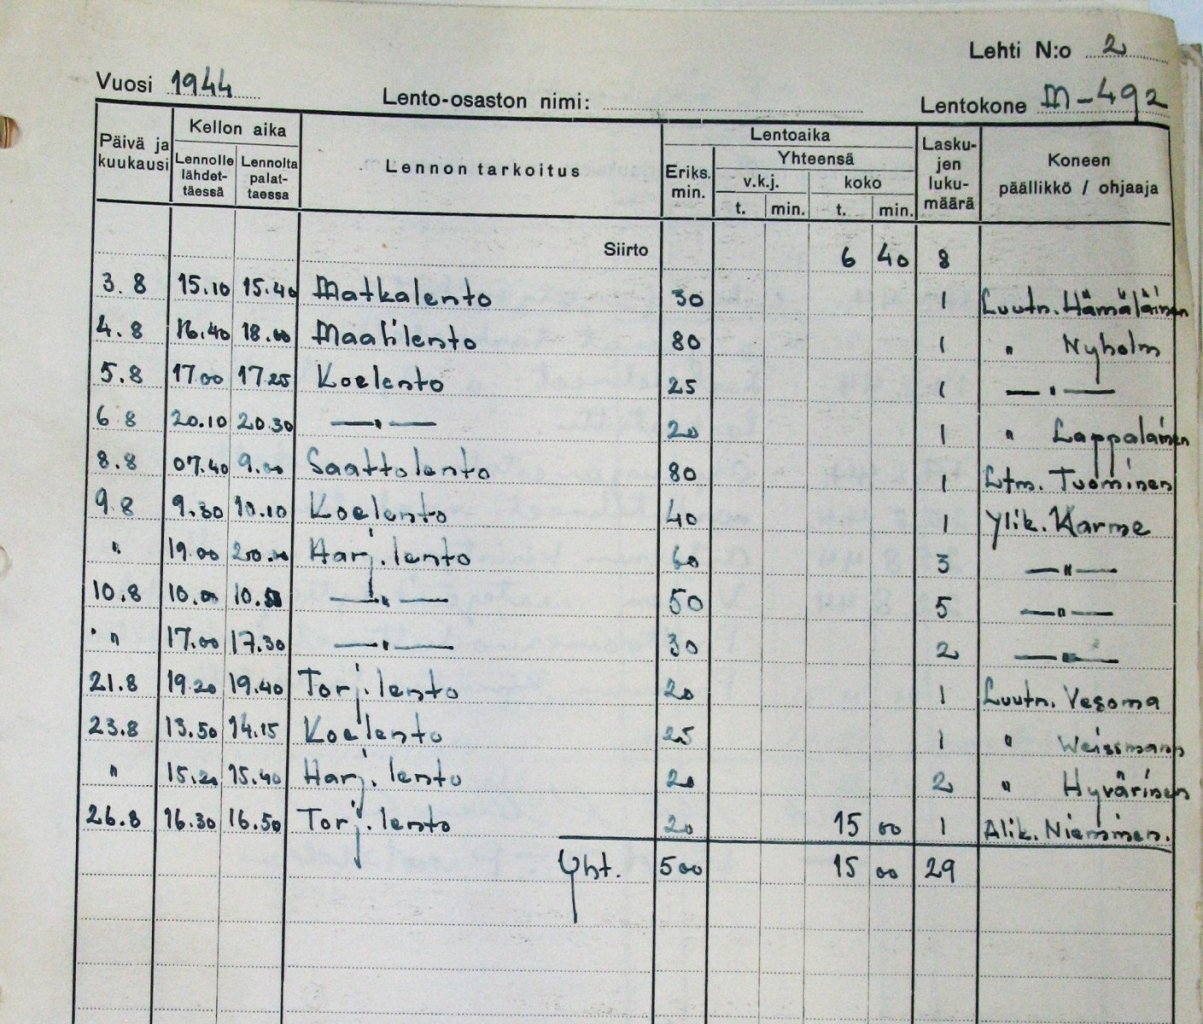 Lehti N:o 2
Vuosi 1944 Lento-osaston nimi: Lentokone M-492
Päivä ja kuukausi Kellon aika Lennolle lähdet-täessä Lennolta palat-taessa Lennon tarkoitus Lentoaika Eriks. min. Yhteensä v.k.j. t. min. koko t. min. Lasku-jen luku-määrä Koneen päällikkö / ohjaaja
Siirto 6 40 8
3.8 15.10 15.40 Matkalento 30 1 Luutn. Hämäläinen
4.8 16.40 18.00 Maalilento 80 1 " Nyholm
5.8 17.00 17.25 Koelento 25 1 —"—
6 8 20.10 20.30 —"— 20 1 " Lappalainen
8.8 07.40 9.00 Saattolento 80 1 Ltm. Tuominen
9.8 9.30 10.10 Koelento 40 1 Ylik. Karme
" 19.00 20.00 Harj. lento 60 3 —"—
10.8 10.00 10.50 —"— 50 5 —"—
" 17.00 17.30 —"— 30 2 —"—
21.8 19.20 19.40 Torj. lento 20 1 Luutn. Vesoma
23.8 13.50 14.15 Koelento 25 1 " Weissmann
" 15.20 15.40 Harj. lento 20 2 " Hyvärinen
26.8 16.30 16.50 Torj. lento 20 15 00 1 Alik. Nieminen.
Yht. 500 15 00 29